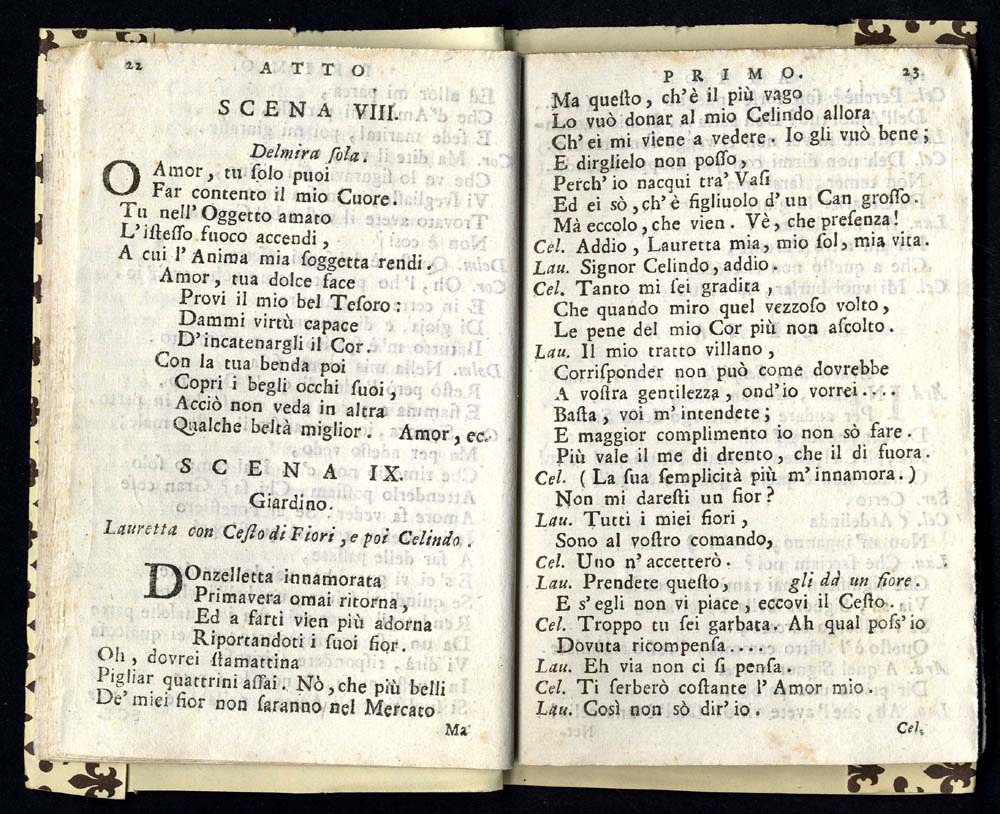 22
ATTO
SCENA VIII.
Delmira ſola.
O Amor, tu ſolo puoi
Far contento il mio Cuore.
Tu nell' Oggetto amato
L' iſteſſo fuoco accendi,
A cui l' Anima mia ſoggetta rendi.
Amor, tua dolce face
Provi il mio bel Teſoro:
Dammi virtù capace
D' incatenargli il Cor.
Con la tua benda poi
Copri i begli occhi ſuoi,
Acciò non veda in altra
Qualche beltà miglior. Amor, ec.
SCENA IX.
Giardino.
Lauretta con Ceſto di Fiori, e poi Celindo.
DOnzelletta innamorata
Primavera omai ritorna,
Ed a farti vien più adorna
Riportandoti i ſuoi fior.
Oh, dovrei ſtamattina
Pigliar quattrini aſſai. Nò, che più belli
De' miei fior non ſaranno nel Mercato
Ma
PRIMO.
23
Ma queſto, ch'è il più vago
Lo vuò donar al mio Celindo allora
Ch' ei mi viene a vedere. Io gli vuò bene;
E dirglielo non poſſo,
Perch' io nacqui tra' Vaſi
Ed ei sò, ch'è figliuolo d' un Can groſſo.
Mà eccolo, che vien. Vè, che preſenza!
Cel. Addio, Lauretta mia, mio ſol, mia vita.
Lau. Signor Celindo, addio.
Cel. Tanto mi ſei gradita,
Che quando miro quel vezzoſo volto,
Le pene del mio Cor più non aſcolto.
Lau. Il mio tratto villano,
Corriſponder non può come dovrebbe
A voſtra gentilezza, ond'io vorrei....
Baſta, voi m' intendete;
E maggior complimento io non sò fare.
Più vale il me di drento, che il di fuora.
Cel. (La ſua ſemplicità più m' innamora.)
Non mi dareſti un fior?
Lau. Tutti i miei fiori,
Sono al voſtro comando,
Cel. Uno n' accetterò.
Lau. Prendete queſto, gli dà un fiore.
E s' egli non vi piace, eccovi il Ceſto.
Cel. Troppo tu ſei garbata. Ah qual poſs' io
Dovuta ricompenſa....
Lau. Eh via non ci ſi penſa.
Cel. Ti ſerberò coſtante l' Amor mio.
Lau. Così non sò dir' io.
Cel.